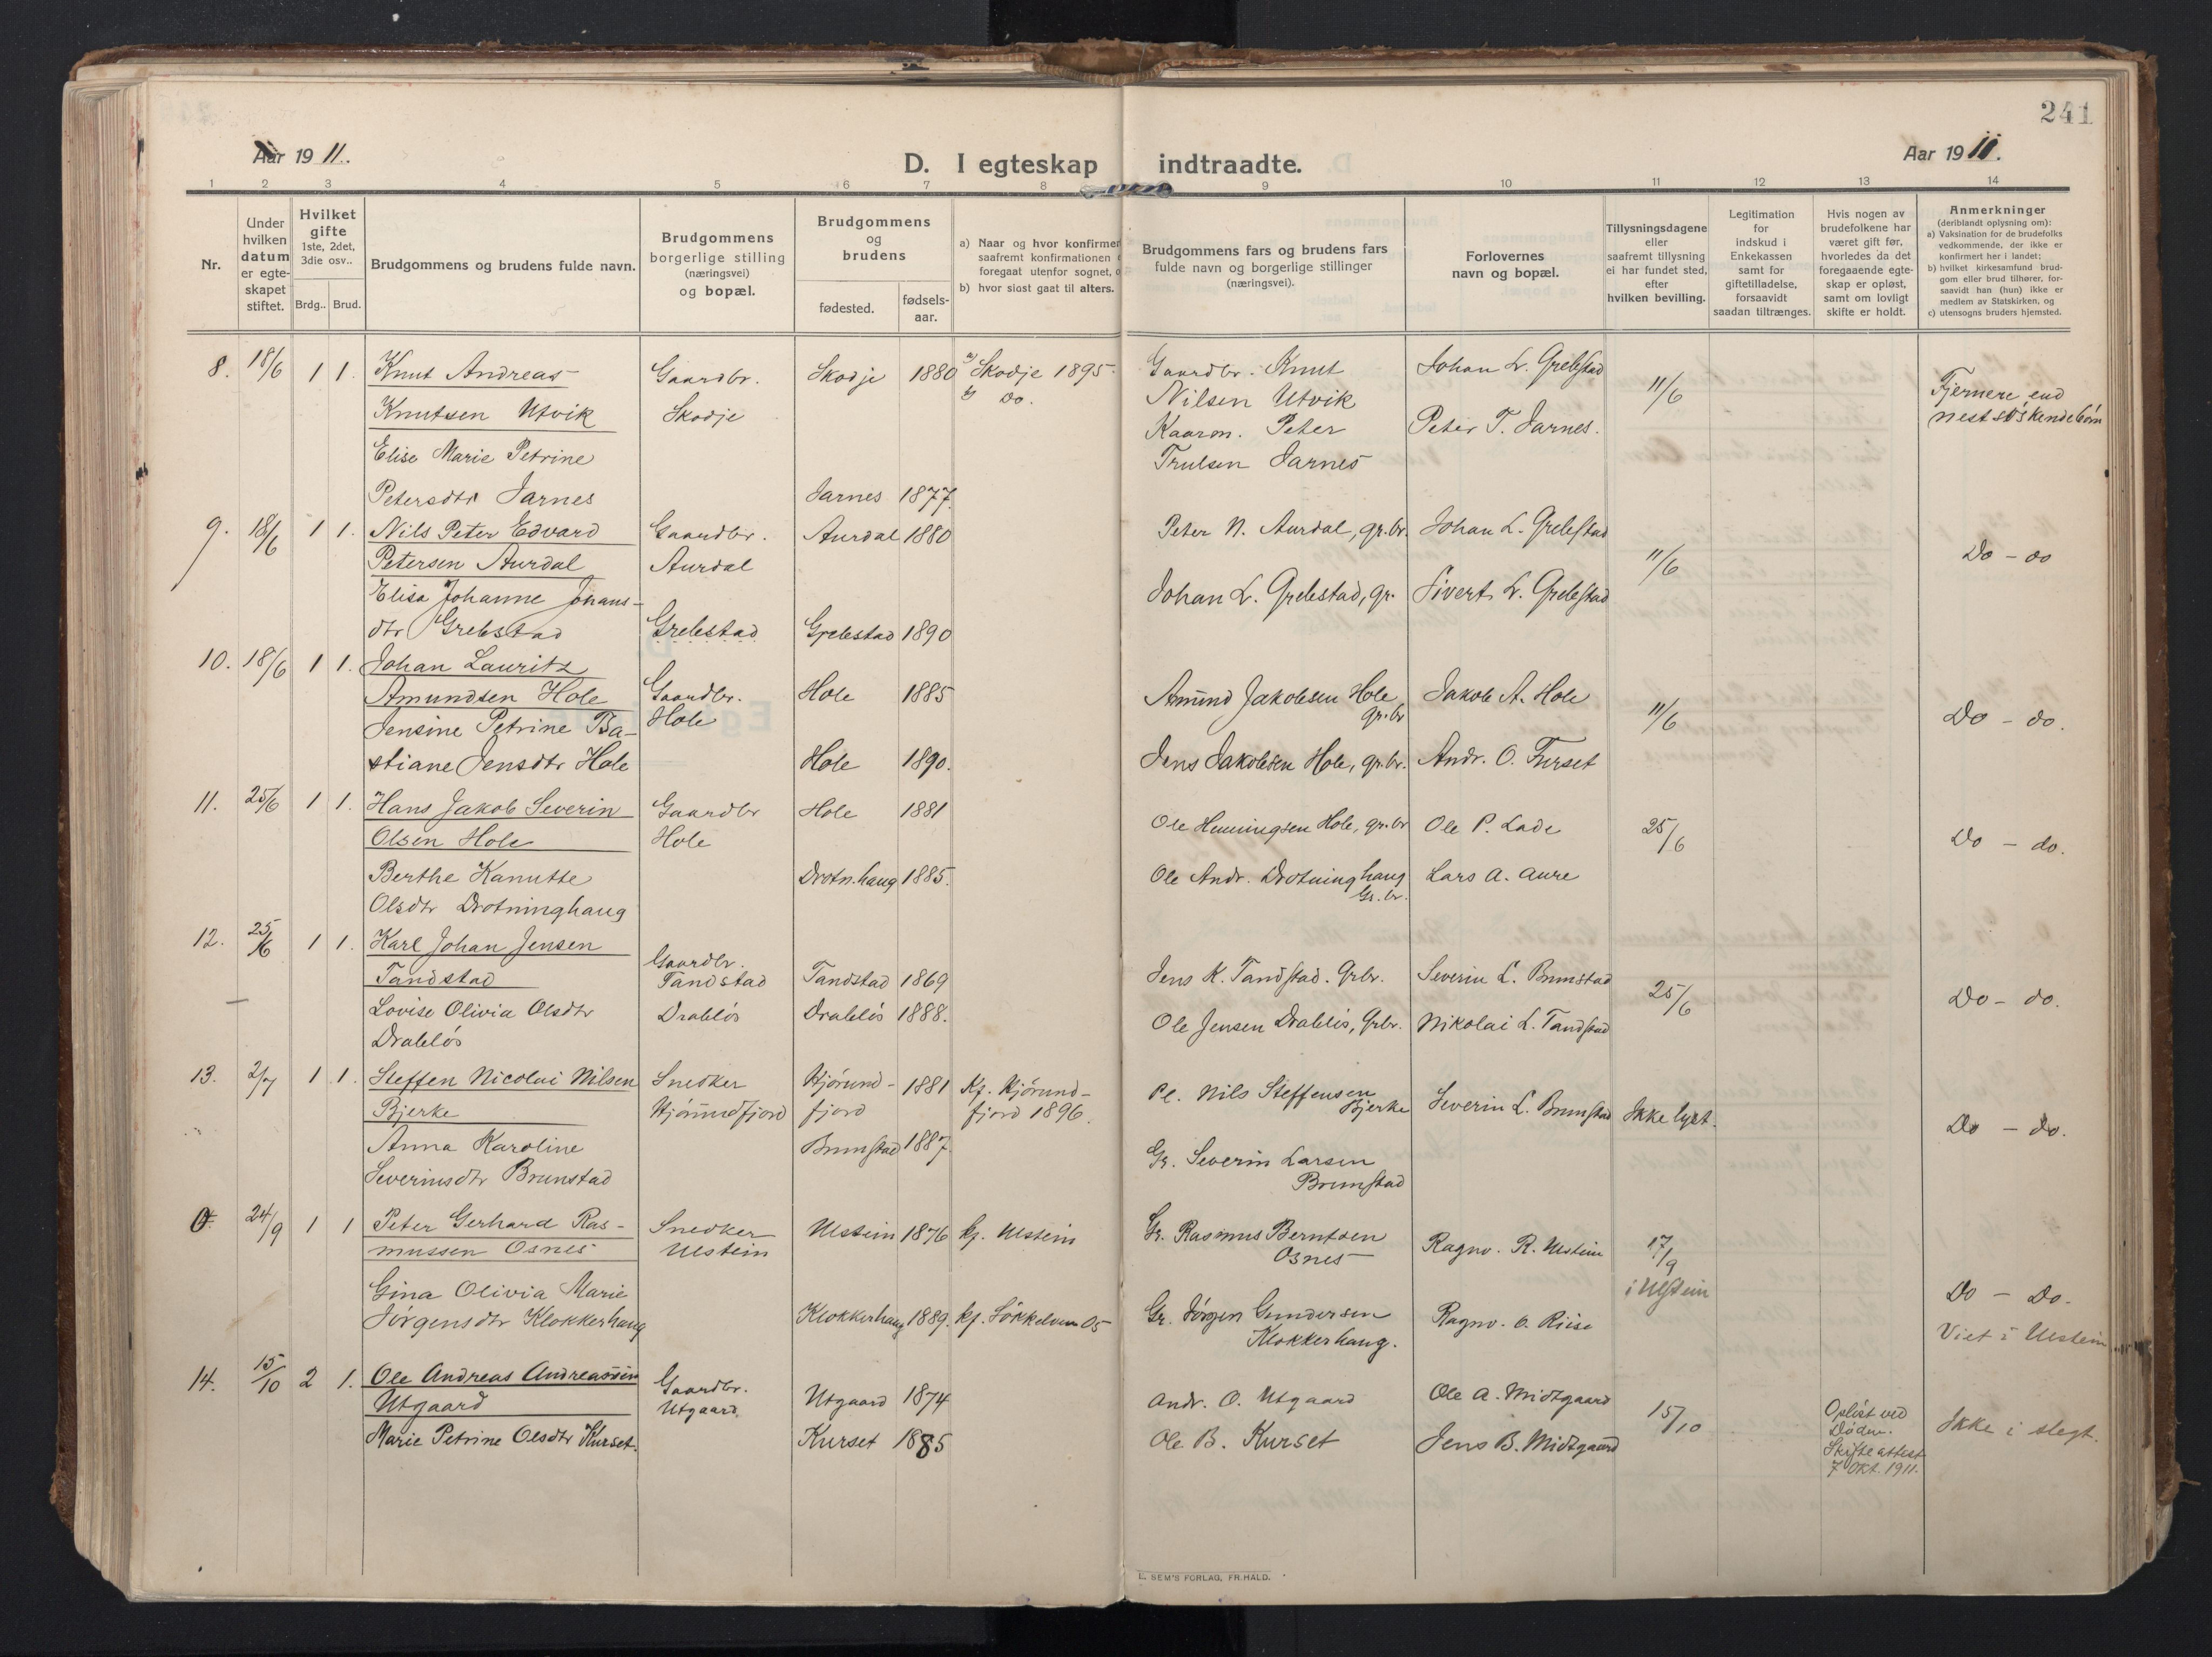 241
Aar 1911.
D. I egteskap indtraadte.
Aar 1911.
1 2 3 4 5 6 7 8 9 10 11 12 13 14
Nr.
Under hvilken datum er egte- skapet stiftet.
Hvilket gifte 1ste, 2det, 3die osv..
Brdg.. Brud.
Brudgommens og brudens fulde navn.
Brudgommens borgerlige stilling (næringsvei) og bopæl.
Brudgommens og brudens
fødested.
fødsels- aar.
a) Naar og hvor konfirmer
saafremt konfirmationen
foregaat utenfor sognet,
b) hvor sidst gaat til alters.
Brudgommens fars og brudens fars
fulde navn og borgerlige stillinger
(næringsvei).
Forlovernes
navn og bopæl.
Tillysningsdagene
eller
saafremt tillysning
ei har fundet sted,
efter
hvilken bevilling.
Legitimation
for
indskud i
Enkekassen
samt for
giftetilladelse,
forsaavidt
saadan tiltrænges.
Hvis nogen av
brudefolkene har
været gift før,
hvorledes da det
foregaaende egte-
skap er opløst,
samt om lovligt
skifte er holdt.
Anmerkninger
(deriblandt oplysning om):
a) Vaksination for de brudefolks
vedkommende, der ikke er
konfirmert her i landet;
b) hvilket kirkesamfund brud-
gom eller brud tilhører, for-
saavidt han (hun) ikke er
medlem av Statskirken, og
c) utensogns bruders hjemsted.
8. 18/6 1 1. Knut Andreas Gaardbr. Skodje 1880 a) Skodje 1895. Gaardbr. Knut Johan L. Grebstad 11/6 Fjernere end
Knutsen Utvik Skodje b) Do. Nilsen Utvik nestsøskendebörn
Elise Marie Petrine Kaarm. Peter Peter T. Jarnes.
Petersdtr Jarnes Jarnes 1877. Trulsen Jarnes
9. 18/6 1 1. Nils Peter Edvard Gaardbr. Aurdal 1880 Peter N. Aurdal, gr.br. Johan L. Grebstad 11/6 Do - do
Petersen Aurdal Aurdal
Elisa Johanne Johans- Johan L. Grebstad, gr. Sivert L. Grebstad
dtr Grebstad Grebstad Grebstad 1890
10. 18/6 1 1. Johan Lauritz
Amundsen Hole Gaardbr. Hole 1885 Amund Jakobsen Hole gr.br Jakob A. Hole 11/6 Do - do.
Jensine Petrine Ba- Hole
stiane Jensdtr Hole Hole 1890. Jens Jakobsen Hole, gr.br. Andr. O. Furset
11. 25/6 1 1. Hans Jakob Severin Gaardbr Hole 1881 Ole Henningsen Hole, gr.br Ole P. Lade 25/6 Do - do.
Olsen Hole Hole
Berthe Kanutte Drotn.haug 1885. Ole Andr. Drotninghaug Gr.br. Lars A. Aure
Olsdtr Drotninghaug
12. 25/6 1 1. Karl Johan Jensen Gaardbr.
Tandstad Tandstad Tandstad 1869 Jens K. Tandstad. Grbr. Severin L. Brunstad 25/6 Do - do.
Lovise Olivia Olsdtr Drabløs Drabløs 1888. Ole Jensen Drabløs, Grbr. Nikolai L. Tandstad
Drabløs
13. 2/7 1 1. Steffen Nicolai Nilsen Snedker Hjørund- 1881 Kf. Hjørund- Pl. Nils Steffensen Severin L. Brunstad Ikke lyst. Do - do.
Bjerke Hjørundfjord fjord fjord 1896. Bjerke
Anna Karoline Brunstad 1887. Gr. Severin Larsen
Severinsdtr Brunstad Brunstad
0. 24/9 1 1 Peter Gerhard Ras- Snedker Ulstein 1876 kf. Ulstein Gr. Rasmus Berntsen Ragnv. R. Ulstein 17/9
mussen Osnes Ulstein Osnes i Ulstein
Gina Olivia Marie Do - Do.
Jørgensdtr Klokkerhaug Klokkerhaug 1889. kf. Søkkelven 05 Gr. Jørgen Gundersen Ragnv. O. Riise Viet i Ulstein
Klokkerhaug.
14. 15/10 2 1. Ole Andreas Andreassen Gaardbr. Utgaard 1874 Andr. O. Utgaard Ole A. Midtgaard 15/10 Opløst ved Ikke i slegt.
Utgaard Utgaard. Døden.
Marie Petrine Olsdtr Kurset. Kurset 1885 Ole B. Kurset Jens B. Midtgaard Skifteattest
7 Okt. 1911.
L. SEM'S FORLAG, FR.HALD.